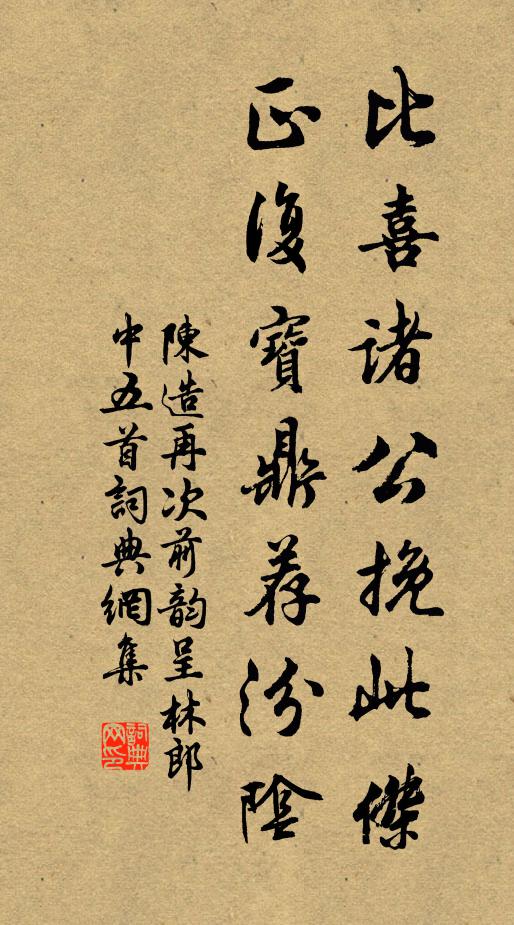 比喜諸公挽此傑
正復寶鼎荐汾陰
陳造再次前韵呈林郎
中五首詞典網集
詞典网印